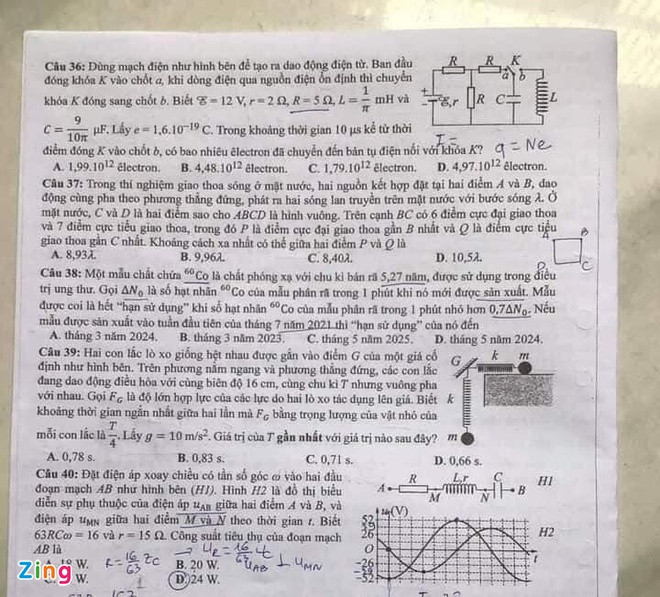 Câu 36: Dùng mạch điện như hình bên để tạo ra dao động điện từ. Ban đầu
đóng khóa K vào chốt a, khi dòng điện qua nguồn điện ổn định thì chuyển
khóa K đóng sang chốt b. Biết ℰ = 12 V, r = 2 Ω, R = 5 Ω, L = 1/π mH và
C = 9/10π μF. Lấy e = 1,6.10⁻¹⁹ C. Trong khoảng thời gian 10 μs kể từ thời
điểm đóng K vào chốt b, có bao nhiêu êlectron đã chuyển đến bản tụ điện nối với khóa K? q = Ne
A. 1,99.10¹² êlectron. B. 4,48.10¹² êlectron. C. 1,79.10¹² êlectron. D. 4,97.10¹² êlectron.
R R K
a b
ℰ,r R C L
I =
Câu 37: Trong thí nghiệm giao thoa sóng ở mặt nước, hai nguồn kết hợp đặt tại hai điểm A và B, dao
động cùng pha theo phương thẳng đứng, phát ra hai sóng lan truyền trên mặt nước với bước sóng λ. Ở
mặt nước, C và D là hai điểm sao cho ABCD là hình vuông. Trên cạnh BC có 6 điểm cực đại giao thoa
và 7 điểm cực tiểu giao thoa, trong đó P là điểm cực đại giao thoa gần B nhất và Q là điểm cực tiểu
giao thoa gần C nhất. Khoảng cách xa nhất có thể giữa hai điểm P và Q là
A. 8,93λ. B. 9,96λ. C. 8,40λ. D. 10,5λ.
A B
D C
Câu 38: Một mẫu chất chứa ⁶⁰Co là chất phóng xạ với chu kì bán rã 5,27 năm, được sử dụng trong điều
trị ung thư. Gọi ΔN₀ là số hạt nhân ⁶⁰Co của mẫu phân rã trong 1 phút khi nó mới được sản xuất. Mẫu
được coi là hết "hạn sử dụng" khi số hạt nhân ⁶⁰Co của mẫu phân rã trong 1 phút nhỏ hơn 0,7ΔN₀. Nếu
mẫu được sản xuất vào tuần đầu tiên của tháng 7 năm 2021 thì "hạn sử dụng" của nó đến
A. tháng 3 năm 2024. B. tháng 3 năm 2023. C. tháng 5 năm 2025. D. tháng 5 năm 2024.
Câu 39: Hai con lắc lò xo giống hệt nhau được gắn vào điểm G của một giá cố
định như hình bên. Trên phương nằm ngang và phương thẳng đứng, các con lắc
đang dao động điều hòa với cùng biên độ 16 cm, cùng chu kì T nhưng vuông pha
với nhau. Gọi F_G là độ lớn hợp lực của các lực do hai lò xo tác dụng lên giá. Biết
khoảng thời gian ngắn nhất giữa hai lần mà F_G bằng trọng lượng của vật nhỏ của
mỗi con lắc là T/4. Lấy g = 10 m/s². Giá trị của T gần nhất với giá trị nào sau đây?
A. 0,78 s. B. 0,83 s. C. 0,71 s. D. 0,66 s.
G k m
k
m
Câu 40: Đặt điện áp xoay chiều có tần số góc ω vào hai đầu
đoạn mạch AB như hình bên (H1). Hình H2 là đồ thị biểu
diễn sự phụ thuộc của điện áp u_AB giữa hai điểm A và B, và
điện áp u_MN giữa hai điểm M và N theo thời gian t. Biết
63RCω = 16 và r = 15 Ω. Công suất tiêu thụ của đoạn mạch
AB là
R = 16/63 Zc → U_R = 16/63 U_C
u_AB ⊥ u_MN
W. B. 20 W.
W. D. 24 W.
A R M L,r N C B H1
u(V)
52
39
26
O t
-26
-39
-52
H2
Zing